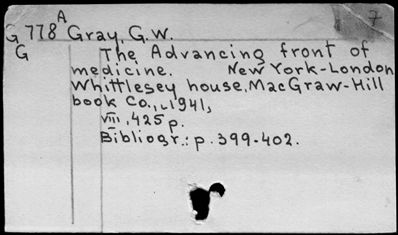 7
A
G 778 Gray, G.W.
G The Advancing front of
medicine. New York-London
Whittlesey house, MacGraw-Hill
book Co., c1941,
VIII, 425 p.
Bibliogr.: p. 399-402.